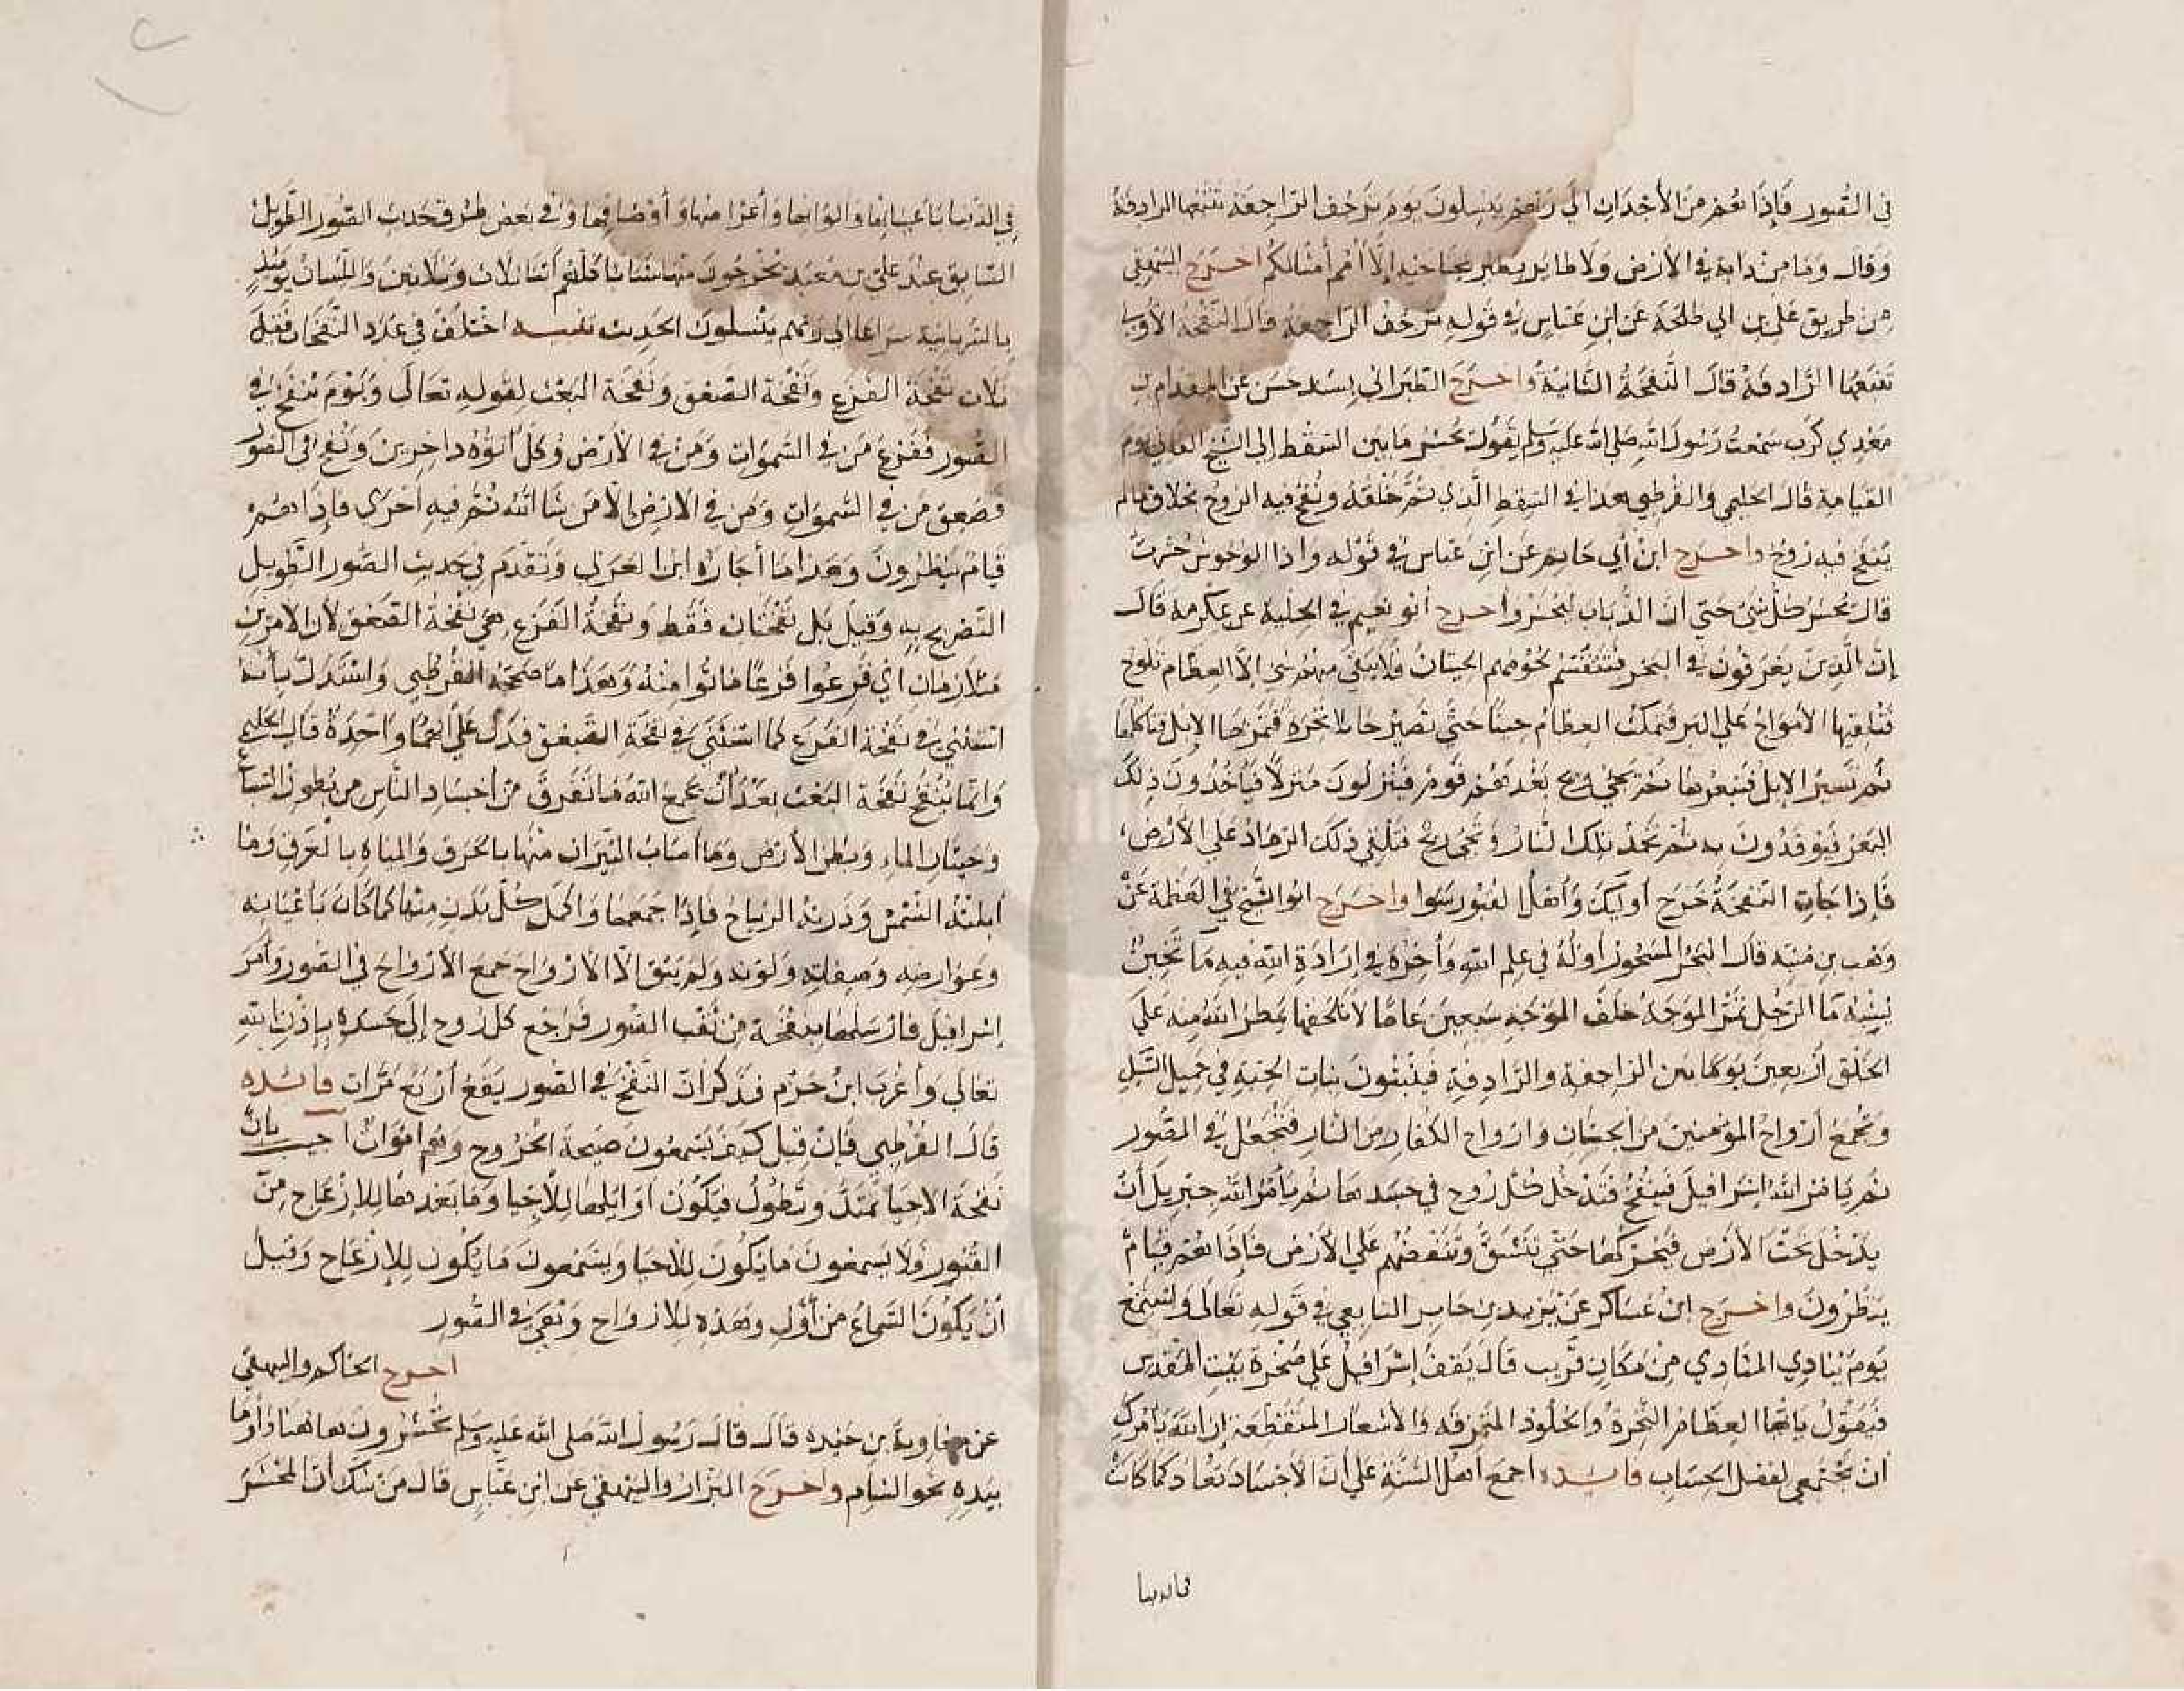 في القبور فإذا هم من الأجداث إلى ربهم ينسلون يوم ترجف الراجفة تتبعها الرادفة
وقال وما من دابة في الأرض ولا طاير يطير بجناحيه إلا أمم أمثالكم اخرج البيهقي
من طريق علي بن ابي طلحة عن ابن عباس في قوله ترجف الراجفة قال النفخة الأولى
تتبعها الرادفة قال النفخة الثانية واخرج الطبراني بسند حسن عن المقدام بن
معدي كرب سمعت رسول الله صلى الله عليه وسلم يقول يحشر ما بين السقط إلى الشيخ الفاني يوم
القيامة قال الحليمي والقرطبي هذا في السقط الذي تم خلقه ونفخ فيه الروح بخلاف مالم
ينفخ فيه روح واخرج ابن أبي حاتم عن ابن عباس في قوله واذا الوحوش حشرت
قال يحشر كل شي حتى أن الذباب ليحشر وأخرج أبو نعيم في الحلية عن عكرمة قال
إن الذين يغرقون في البحر فتقتسم لحومهم الحيتان ولا يبقى منهم شي إلا العظام تلوح
فتلقيها الأمواج على البر فتمكث العظام حينا حتى تصير حائلا نخرة فتمر بها الإبل فتاكلها
ثم تسير الإبل فتبعرها ثم يجي بعدهم قوم فينزلون منزلا فياخذون ذلك
البعر فيوقدون به ثم تخمد تلك النار وتجي ريح فتلقي ذلك الرماد على الأرض
فإذا جات النفخة خرج أوليك وأهل القبور سوا واخرج ابو الشيخ في العظمة عن
وهب بن منبه قال البحر المسجور أوله في علم الله وأخره في إرادة الله فيه ماء ثخين
شبه ما الرجل تمر الموجة خلف الموجة سبعين عاما لا تلحقها يمطر الله منه على
الخلق أربعين يوما بين الراجفة والرادفة فينبتون نبات الحبة في حميل السيل
وتجمع أرواح المؤمنين من الجنان وارواح الكفار من النار فتجعل في الصور
ثم يامر الله إسرافيل فينفخ فتدخل كل روح في جسدها ثم يأمر الله جبريل أن
يدخل تحت الأرض فيحركها حتى تنشق وتنفضهم على الأرض فإذا هم قيام
ينظرون واخرج ابن عساكر عن يزيد بن جابر التابعي في قوله تعالى واستمع
يوم ينادي المنادي من مكان قريب قال يقف إسرافيل على صخرة بيت المقدس
فيقول ياأيتها العظام النخرة والجلود المتمزقة والأشعار المتقطعة إن الله يامرك
أن تجتمعي لفصل الحساب فايدة اجمع أهل السنة على أن الأجساد تعاد كما كانت
في الدنيا
في الدنيا بأعيانها وألوانها وأعراضها وأوصافها وفي بعض طرق حديث الصور الطويل
السابق عند علي بن معبد تخرجون منها شبابا كلكم أبنا ثلاث وثلاثين واللسان يومئذ
بالسريانية سراعا إلى ربهم ينسلون الحديث تنبيه اختلف في عدد النفخات فقيل
ثلاث نفخة الفزع ونفخة الصعق ونفخة البعث لقوله تعالى ويوم ينفخ في
الصور ففزع من في السموات ومن في الأرض وكل أتوه داخرين ونفخ في الصور
فصعق من في السموات ومن في الارض إلا من شا الله ثم نفخ فيه أخرى فإذا هم
قيام ينظرون وهذا ما اختاره ابن العربي وتقدم في حديث الصور الطويل
التصريح به وقيل بل نفختان فقط ونفخة الفزع هي نفخة الصعق لأن الأمرين
متلازمان اي فزعوا فزعا ماتوا منه وهذا ما صححه القرطبي واستدل بأنه
استثنى في نفخة الفزع كما استثنى في نفخة الصعق فدل على أنهما واحدة قال الحليمي
وإنما ينفخ نفخة البعث بعد أن يجمع الله ما تفرق من أجساد الناس من بطون السباع
وحيتان الماء وبطن الأرض وما أصاب النيران منها بالحرق والمياه بالغرق وما
أبلته الشمس وذرته الرياح فإذا جمعها واكمل كل بدن منها كما كان بأعيانه
وعوارضه وصفاته ولونه ولم يبق إلا الأرواح جمع الأرواح في الصور وأمر
إسرافيل فارسلها بنفخة من ثقب الصور فرجع كل روح إلى جسده بإذن الله
تعالى وأغرب ابن حزم فذكر ان النفخ في الصور يقع أربع مرات فايدة
قال القرطبي فإن قيل كيف يسمعون صيحة الخروج وهم اموات اجيب بان
نفخة الاحيا تمتد وتطول فيكون أوايلها للاحيا وما بعدها للإزعاج من
القبور ولا يسمعون ما يكون للاحيا ويسمعون ما يكون للإزعاج وقيل
أن يكون السماع من أول وهذه للارواح وهي في القبور
اخرج الحاكم والبيهقي
عن معاوية بن حيدة قال قال رسول الله صلى الله عليه وسلم تحشرون هاهنا وأوما
بيده نحو الشام واخرج البزار والبيهقي عن ابن عباس قال من شك أن المحشر